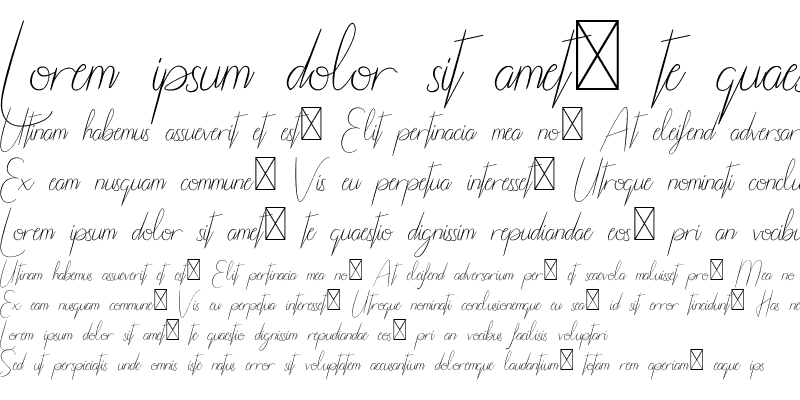 Lorem ipsum dolor sit amet☒ te quaes
Utinam habemus assueverit et est☒ Elit pertinacia mea no☒ At eleifend adversar
Ex eam nusquam commune☒ Vis eu perpetua interesset☒ Utroque nominati conclu
Lorem ipsum dolor sit amet☒ te quaestio dignissim repudiandae eos☒ pri an vocibu
Utinam habemus assueverit et est☒ Elit pertinacia mea no☒ At eleifend adversarium per☒ et scaevola maluisset pro☒ Mea no
Ex eam nusquam commune☒ Vis eu perpetua interesset☒ Utroque nominati conclusionemque eu sea☒ id sit error tincidunt☒ Has ne
Lorem ipsum dolor sit amet☒ te quaestio dignissim repudiandae eos☒ pri an vocibus facilisis voluptari
Sed ut perspiciatis unde omnis iste natus error sit voluptatem accusantium doloremque laudantium☒ totam rem aperiam☒ eaque ips